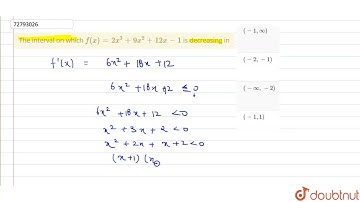 72793026
The interval on which f(x) = 2x³ + 9x² + 12x − 1 is decreasing in
f'(x) = 6x² + 18x + 12
6x² + 18x + 12 ≤ 0
6x² + 18x + 12 < 0
x² + 3x + 2 < 0
x² + 2x + x + 2 < 0
(x+1) (x
(−1, ∞)
(−2, −1)
(−∞, −2)
(−1, 1)
doubtnut